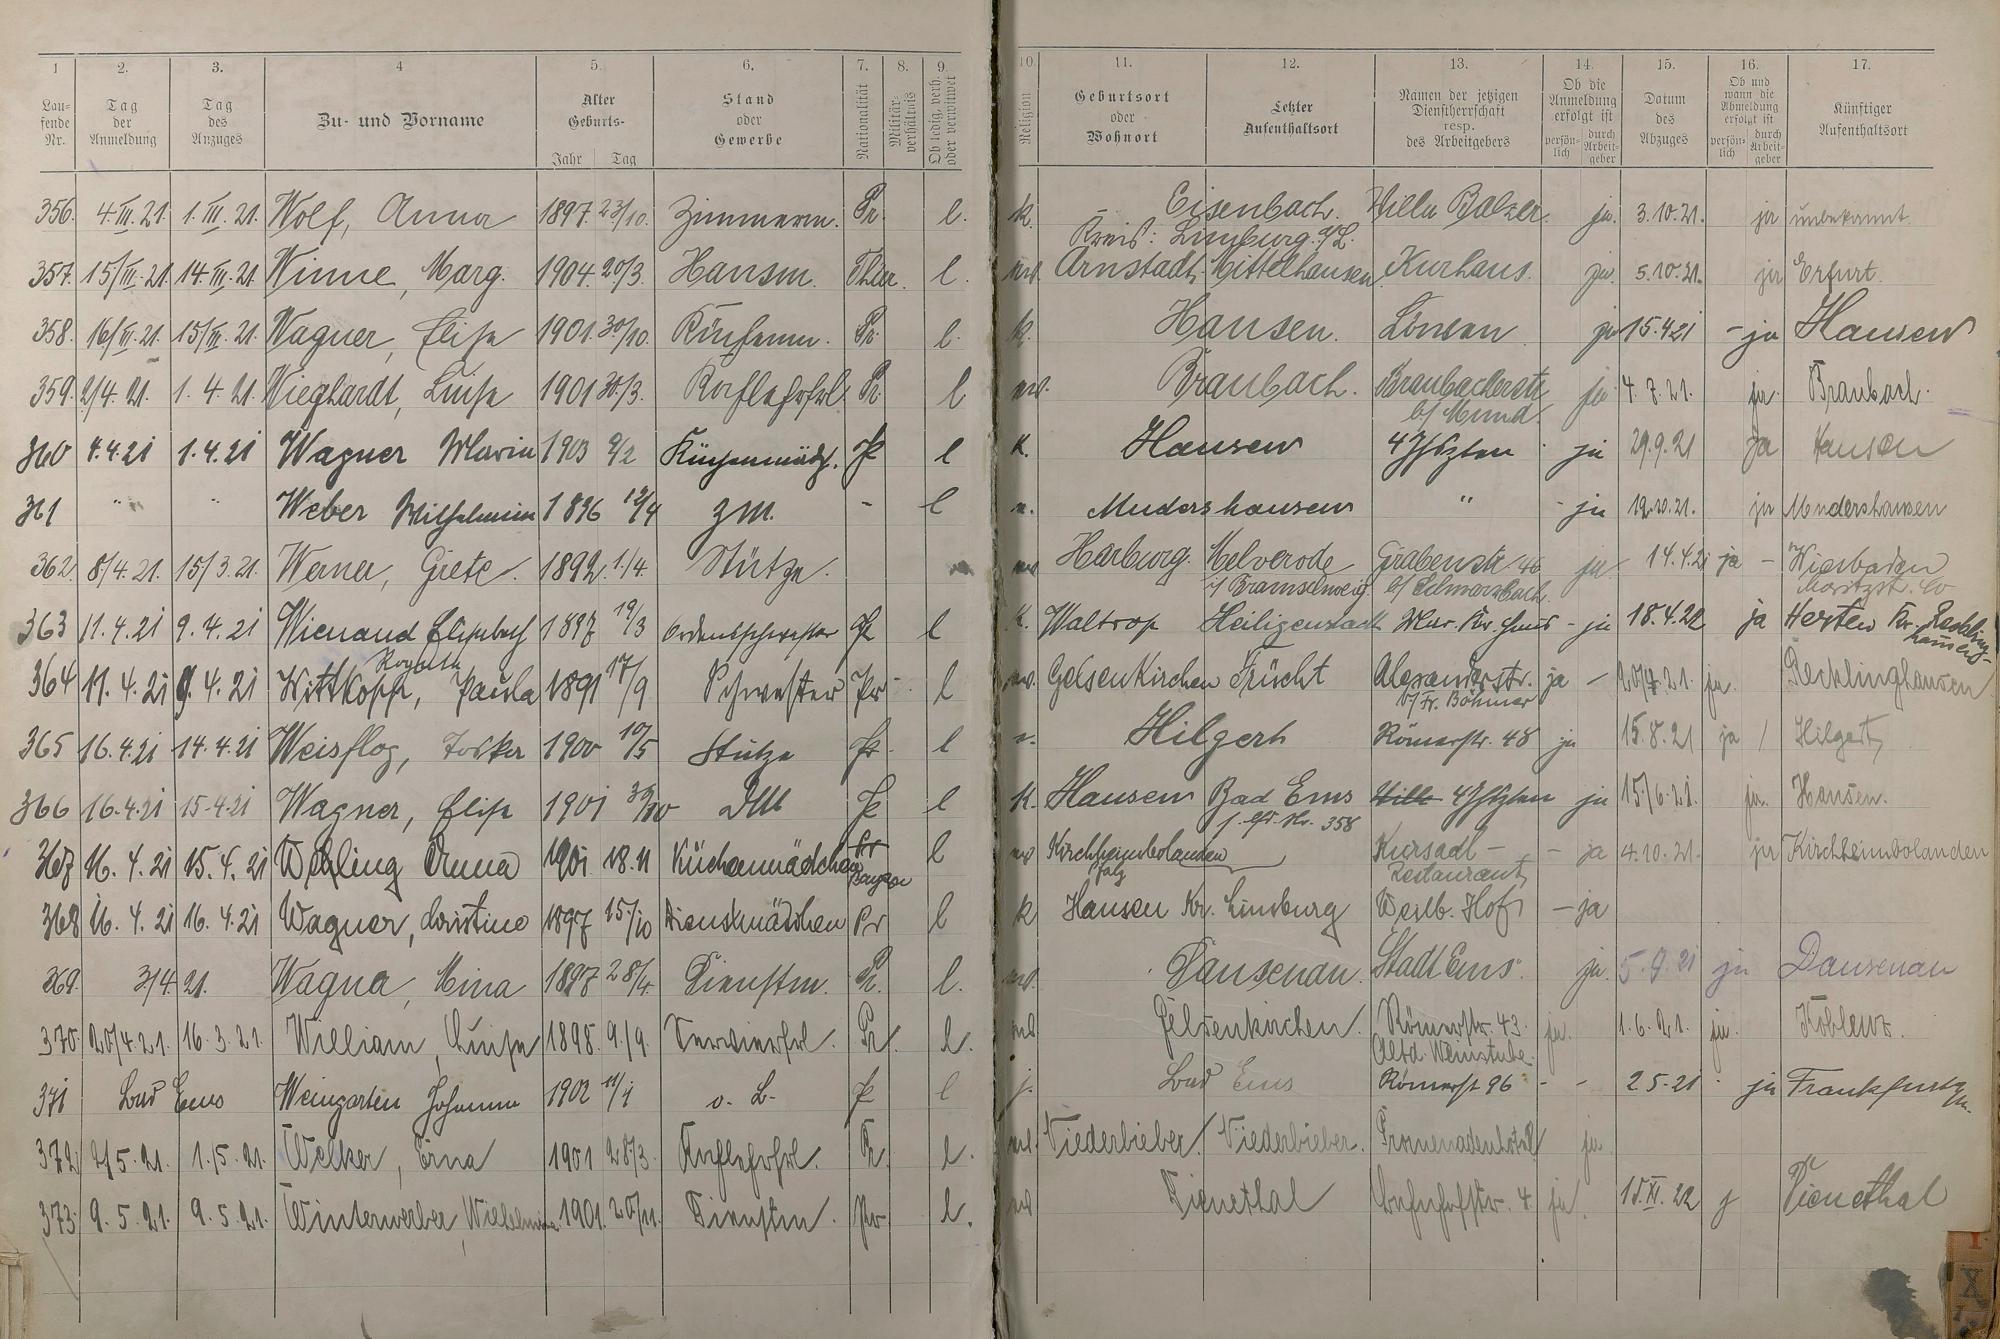 1 2. 3. 4 5. 6. 7. 8. 9. 10. 11. 12. 13. 14. 15. 16. 17.
Lau-
fende
Nr.
Tag
der
Anmeldung
Tag
des
Anzuges
Zu- und Vorname
Alter
Geburts-
Jahr Tag
Stand
oder
Gewerbe
Nationalität
Militär-
verhältnis
Ob ledig, verh.
oder verwitwet
Religion
Geburtsort
oder
Wohnort
Letzter
Aufenthaltsort
Namen der jetzigen
Dienstherrschaft
resp.
des Arbeitgebers
Ob die
Anmeldung
erfolgt ist
persön-
lich
durch
Arbeit-
geber
Datum
des
Abzuges
Ob und
wann die
Abmeldung
erfolgt ist
persön-
lich
durch
Arbeit-
geber
Künftiger
Aufenthaltsort
356. 4.III.21. 1.III.21. Wolf, Anna 1897 23/10. Zimmerm. Pr. l. k. Eisenbach. Villa Balzer. ja. 3.10.21. ja unbekannt.
Kreis: Limburg a/L.
357. 15/III.21. 14.III.21. Winne, Marg. 1904. 20/3. Hausm. Thür. l. Arnstadt. Mittelhausen. Kurhaus. ja. 5.10.21. ja Erfurt.
358. 16/III.21. 15/III.21. Wagner, Elise 1901. 30/10. Pr. l. k. Hausen. Löwen ja 15.4.21 - ja Hausen
359. 2/4.21. 1.4.21. Wieghardt, Luise 1901 30/3. Kochlehrfrl. Pr. l Braubach. Braubacherstr. ja. 4.7.21. ja. Braubach.
b/ Mund.
360 4.4.21 1.4.21 Wagner Maria 1903 9/2 Küchenmädch. Pr l K. Hausen 4 Jhszten ja 29.9.21 Ja Hausen
361 " " Weber Wilhelmine 1896 12/4 ZM. - l Mudershausen " - ja 19.10.21. ja Mudershausen
362. 8/4.21. 15/3.21. Werner, Grete. 1892. 1/4. Stütze. Harburg. Melverode Grabenstr. 46 ja 14.4.21 ja - Wiesbaden
i/ Braunschweig. b/ Schwarzbach. Moritzstr.
363 11.4.21 9.4.21 Wienand Elisabeth 1897 19/3 Ordensschwester Pr l K. Waltrop Heiligenstadt - ja 18.4.22 ja Herten Kr. Recklinghausen
364 11.4.21 9.4.21 Wittkopp, Paula 1891 17/9 Schwester Pr. l Gelsenkirchen Frücht Alexanderstr. ja - 20/4.21. ja. Recklinghausen
b/ Fr. Böhmer
365 16.4.21 14.4.21 Weisflog, 1900 10/5 Stütze Pr. l Hilgert Römerstr. 48 ja 15.8.21 ja / Hilgert
366 16.4.21 15.4.21 Wagner, Elise 1901 30/10 Pr l K. Hausen Bad Ems 4 Jhszten ja 15/6.21. ja. Hausen.
s. lfd. Nr. 358
367 16.4.21 15.4.21 Anna 1901 18.11 Küchenmädchen Pr l Kirchheimbolanden Kursaal - - ja 4.10.21. ja Kirchheimbolanden
Bayern Pfalz Restaurant
368 16.4.21 16.4.21 Wagner, Christine 1897 15/10 Dienstmädchen Pr l k Hausen Kr. Limburg Weilb. Hof - ja
369. 3/4 21. Wagna, Mina 1897 28/4. Dienstm. Pr. l. Dausenau. Stadt Ems. ja. 5.9.21 ja Dausenau
370. 20/4.21. 16.3.21. William, Luise 1898. 9./9. Servierfrl. Pr. l. Gelsenkirchen. Römerstr. 43. ja. 1.6.21. ja. Koblenz.
Altd. Weinstube.
371 Bad Ems Weingarten Johanna 1902 11/1 o. B. Pr l j. Bad Ems Römerstr 96 - - 2.5.21 ja Frankfurt a/M.
372. 2/5.21. 1./5.21. Welker, Erna 1901 28/3. Kochlehrfrl. Pr. l. Niederbieber. Niederbieber. Promenadenhotel ja.
373. 9.5.21. 9.5.21. Winterwerber, Wilhelmine. 1901. 20/11. Dienstm. Pr l. Dienethal Bahnhofstr. 4. ja. 15.XI.22 j Dienethal